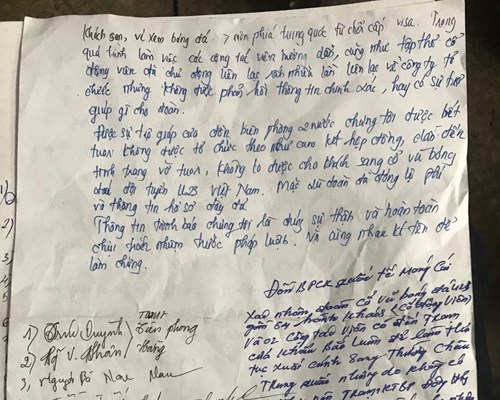 khách sạn, vé xem bóng đá > nên phía trung quốc từ chối cấp visa. Trong
quá trình làm việc các cộng tác viên hướng dẫn, cũng như tập thể cổ
động viên đã chủ động liên lạc rất nhiều lần liên lạc về công ty tổ
chức nhưng không được phản hồi thông tin chính xác, hay có sự trợ
giúp gì cho đoàn.
Được sự trợ giúp của đồn biên phòng 2 nước chúng tôi được biết
tua không được tổ chức theo như cam kết hợp đồng, dẫn đến
tình trạng vỡ tua, không lo được cho khách sang cổ vũ bóng
đá đội tuyển U23 Việt Nam. Mặc dù đoàn đã đóng lệ phí
và thông tin hồ sơ đầy đủ
Thông tin trình báo chúng tôi là đúng sự thật và hoàn toàn
chịu trách nhiệm trước pháp luật. Và cùng nhau kí tên để
làm chứng.
Đồn BPCK Quốc tế Móng Cái
Xác nhận, đoàn cổ vũ bóng đá U23
gồm 54 hành khách (cổ động viên)
Và 02 cộng tác viên có đến Trạm
cửa khẩu Bắc Luân để làm thủ
tục xuất cảnh sang Thường Châu
Trung Quốc nhưng do không có
1) Quỳnh
Tiền phong
2) V. Nhân
3, Nguyễn Bá Nam Nam